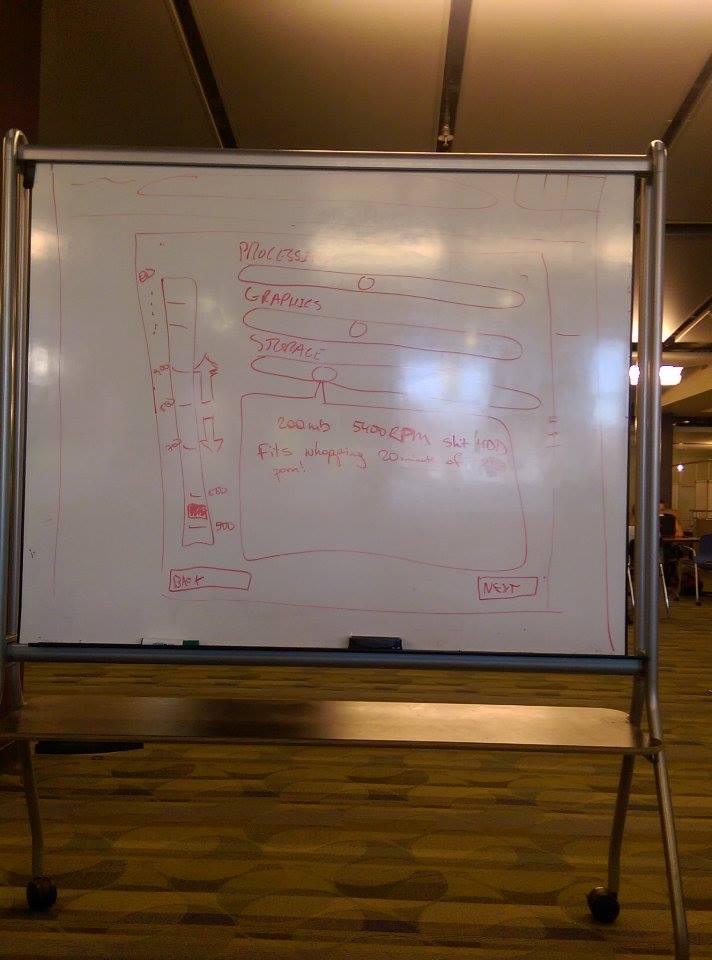 PROCESSI
GRAPHICS
STORAGE
200mb 5400RPM shit HDD
Fits whopping 20 minute of
porn!
600
500
BACK
NEXT